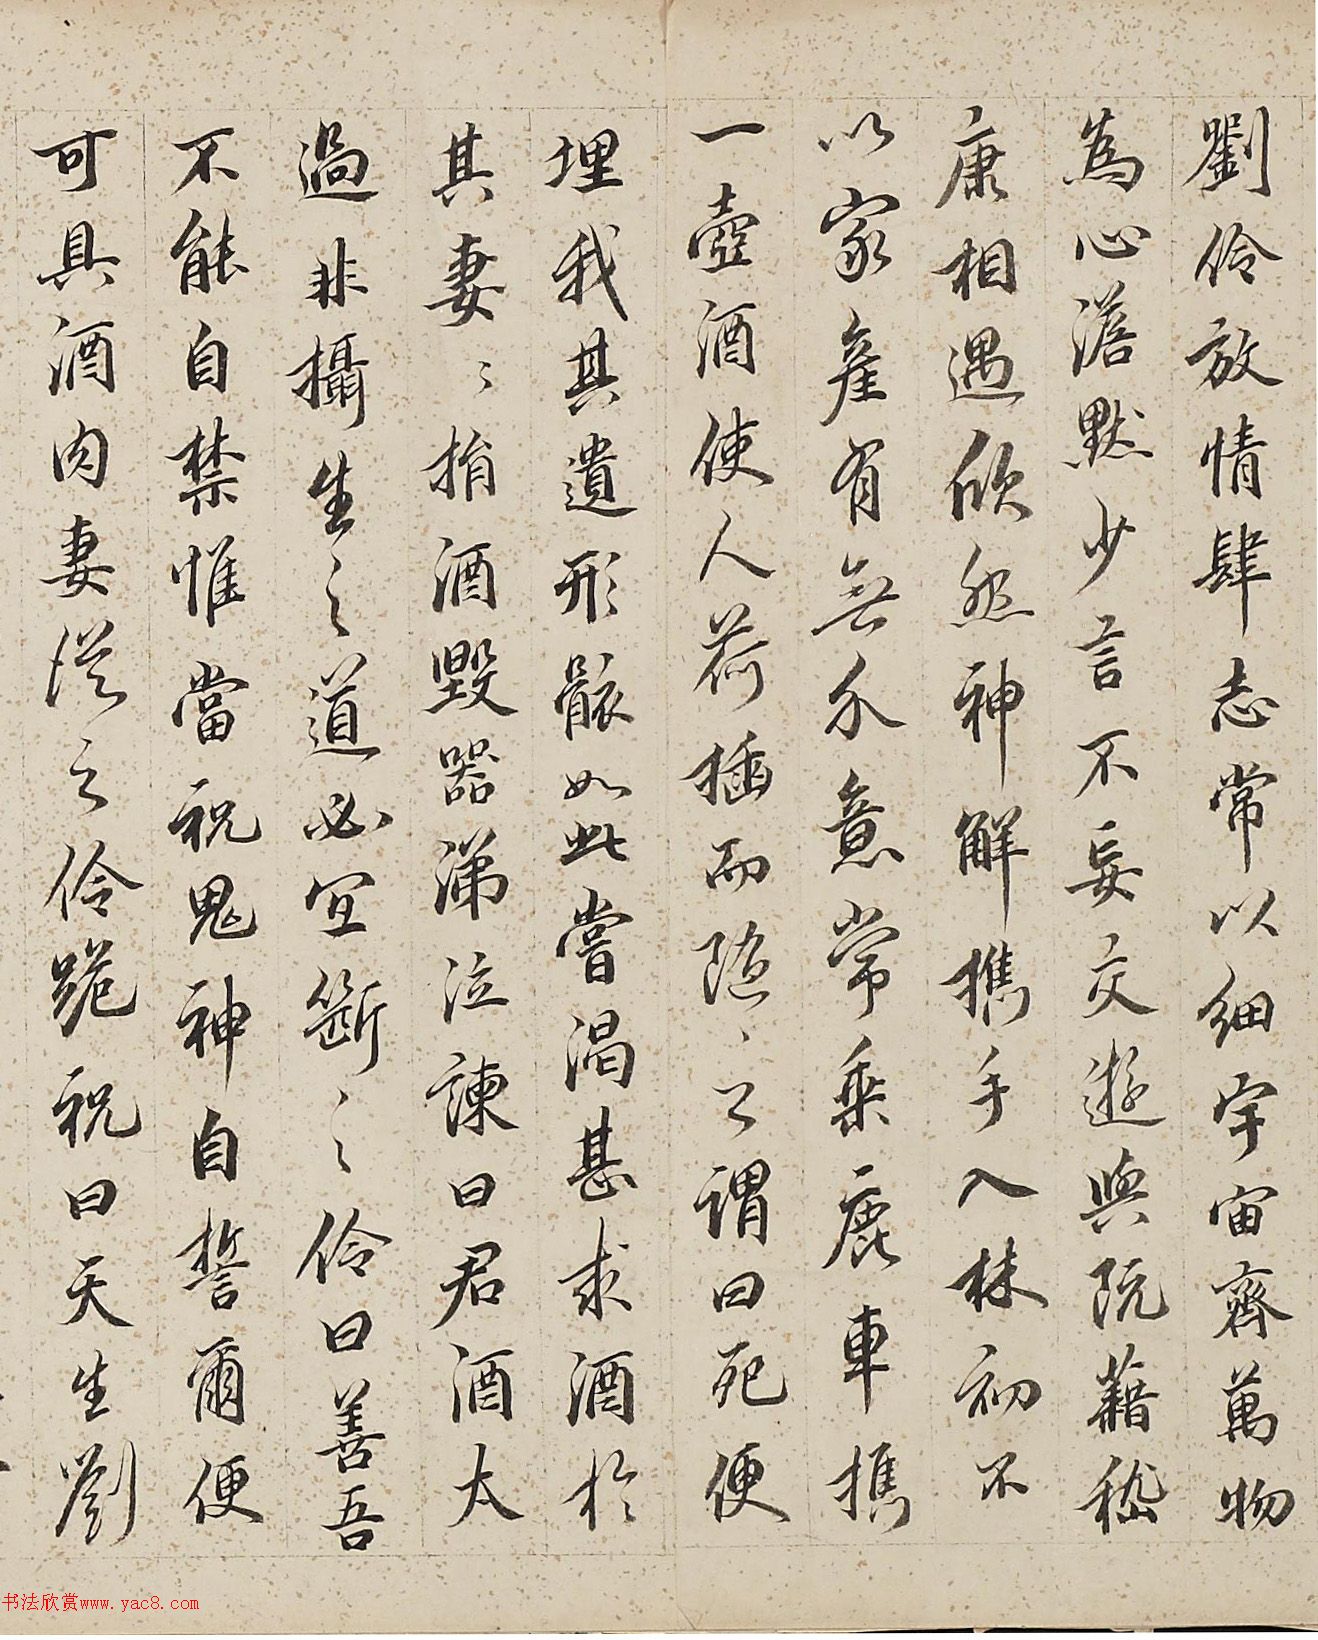 劉伶放情肆志常以細宇宙齊萬物
為心澹默少言不妄交遊與阮藉嵇
康相遇欣然神解攜手入林初不
以家產有無介意常乘鹿車攜
一壺酒使人荷插而隨之謂曰死便
埋我其遺形骸如此嘗渴甚求酒於
其妻〻捐酒毀器涕泣諫曰君酒太
過非攝生之道必宜斷之伶曰善吾
不能自禁惟當祝鬼神自誓爾便
可具酒肉妻從之伶跪祝曰天生劉
书法欣赏www.yac8.com